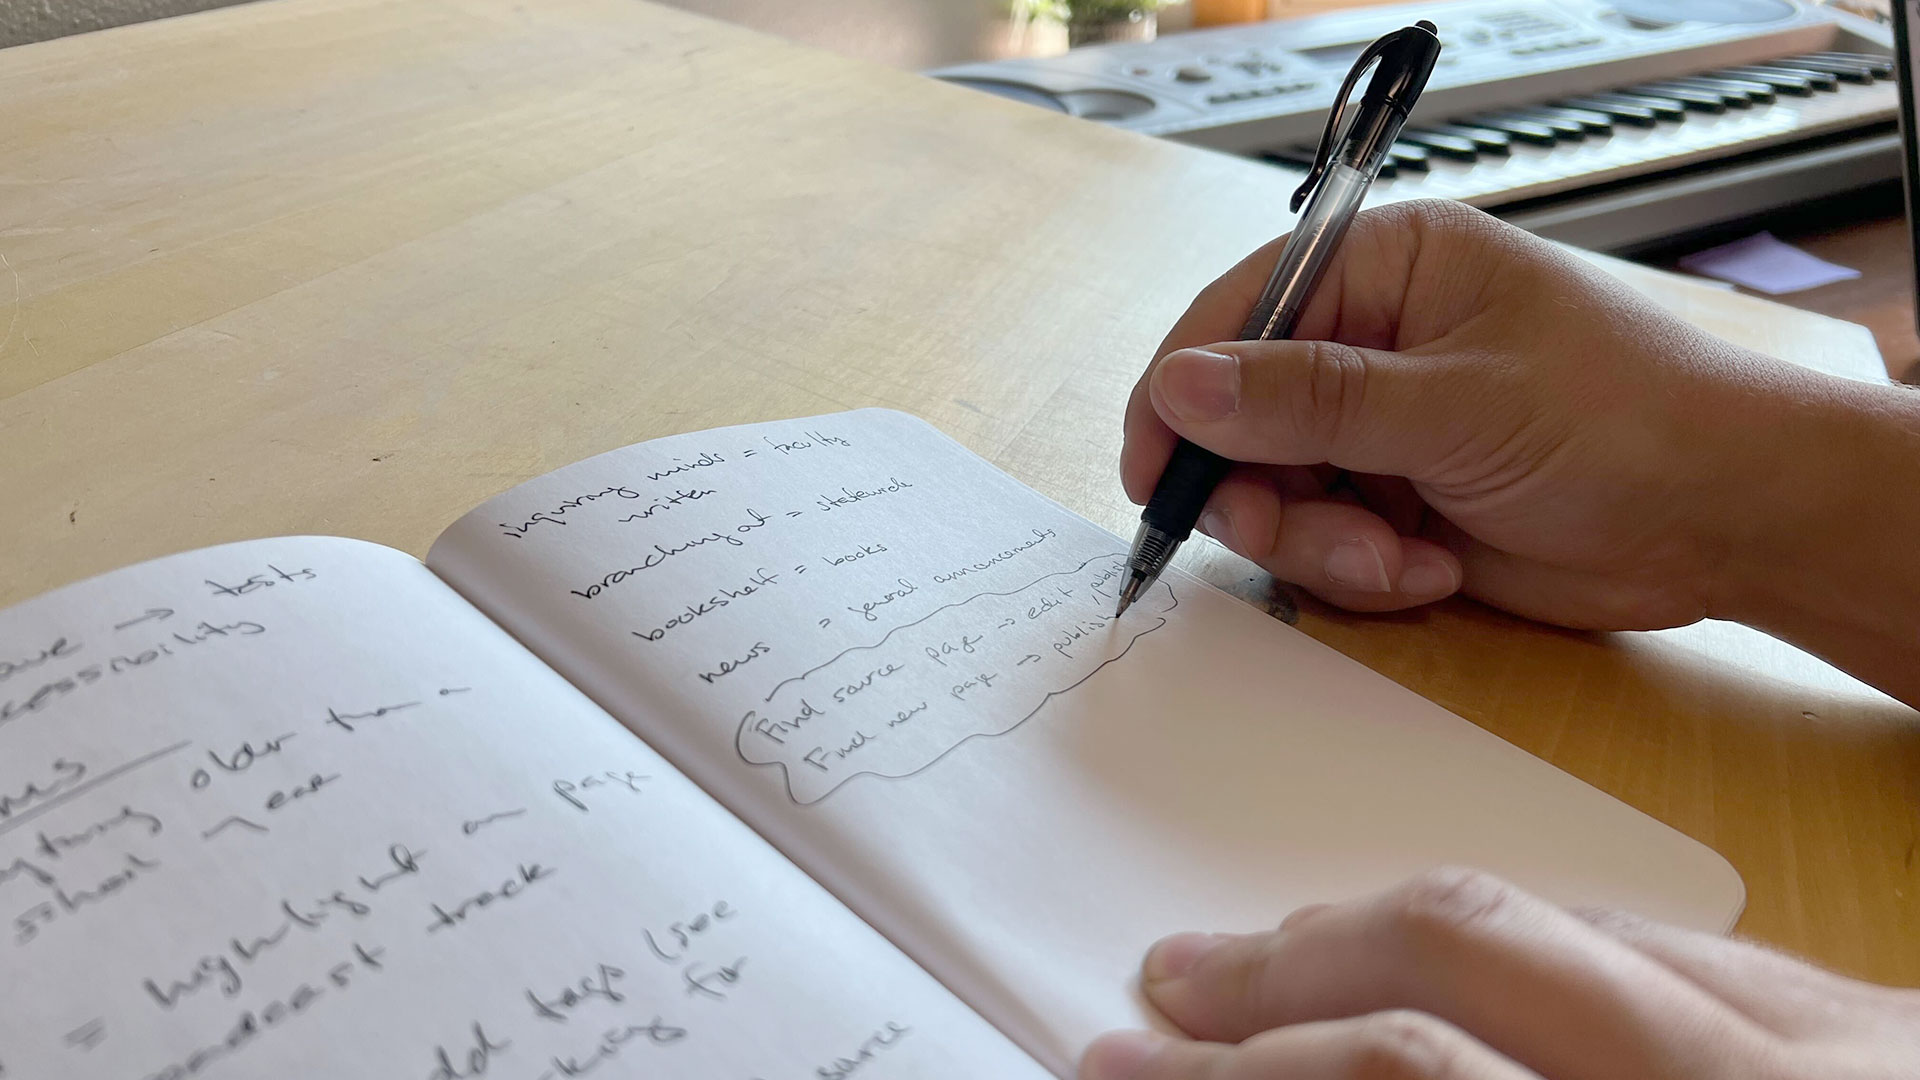 → tests
older than a
school year
= highlight on page
track
add tags (see
for
source
inquiring minds = faculty
written
branching out = statewide
bookshelf = books
news = general announcements
Find source page → edit, publish
Find new page → publish